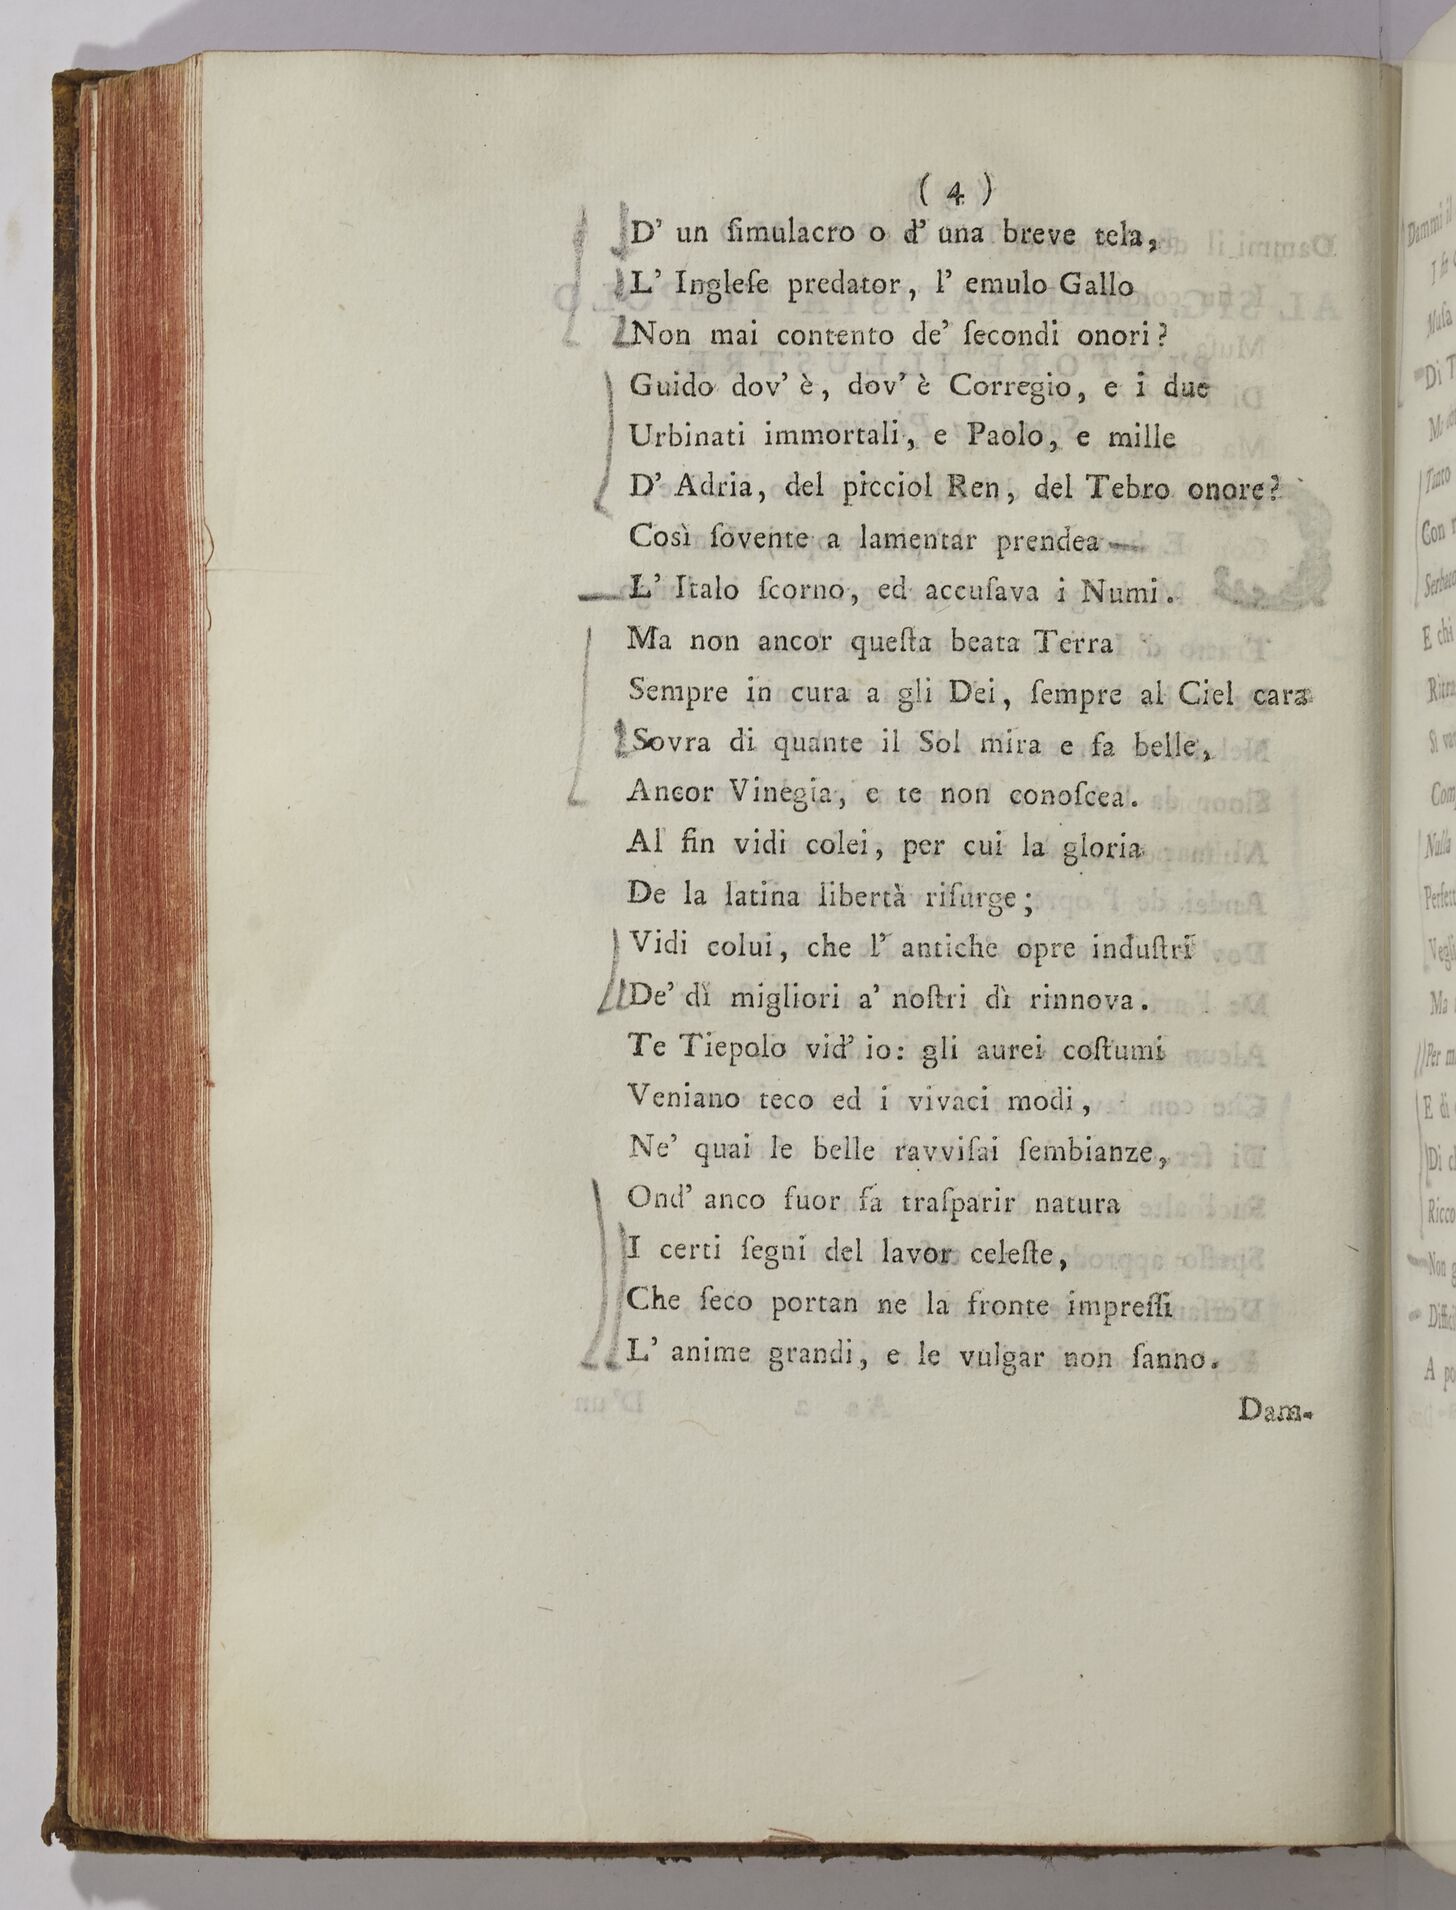 ( 4 )
D' un ſimulacro o d' una breve tela,
L' Ingleſe predator, l' emulo Gallo
Non mai contento de' ſecondi onori?
Guido dov' è, dov' è Corregio, e i due
Urbinati immortali, e Paolo, e mille
D' Adria, del picciol Ren, del Tebro onore?
Così ſovente a lamentar prendea
L' Italo ſcorno, ed accuſava i Numi.
Ma non ancor queſta beata Terra
Sempre in cura a gli Dei, ſempre al Ciel cara
Sovra di quante il Sol mira e fa belle,
Ancor Vinegia, e te non conoſcea.
Al fin vidi colei, per cui la gloria
De la latina libertà riſurge;
Vidi colui, che l' antiche opre induſtri
De' dì migliori a' noſtri dì rinnova.
Te Tiepolo vid' io: gli aurei coſtumi
Veniano teco ed i vivaci modi,
Ne' quai le belle ravviſai ſembianze,
Ond' anco fuor fa traſparir natura
I certi ſegni del lavor celeſte,
Che ſeco portan ne la fronte impreſſi
L' anime grandi, e le vulgar non ſanno.
Dam-
Dammi il
Muſa
Di T
Tanto
Con
E chi
Nulla
Ma
Per m
E di
Di
Ricco
Non
A po